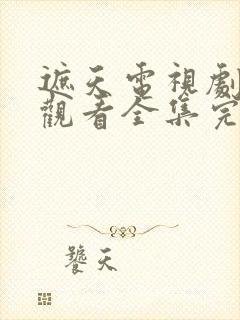 遮天電視劇
觀看全集完
饕天